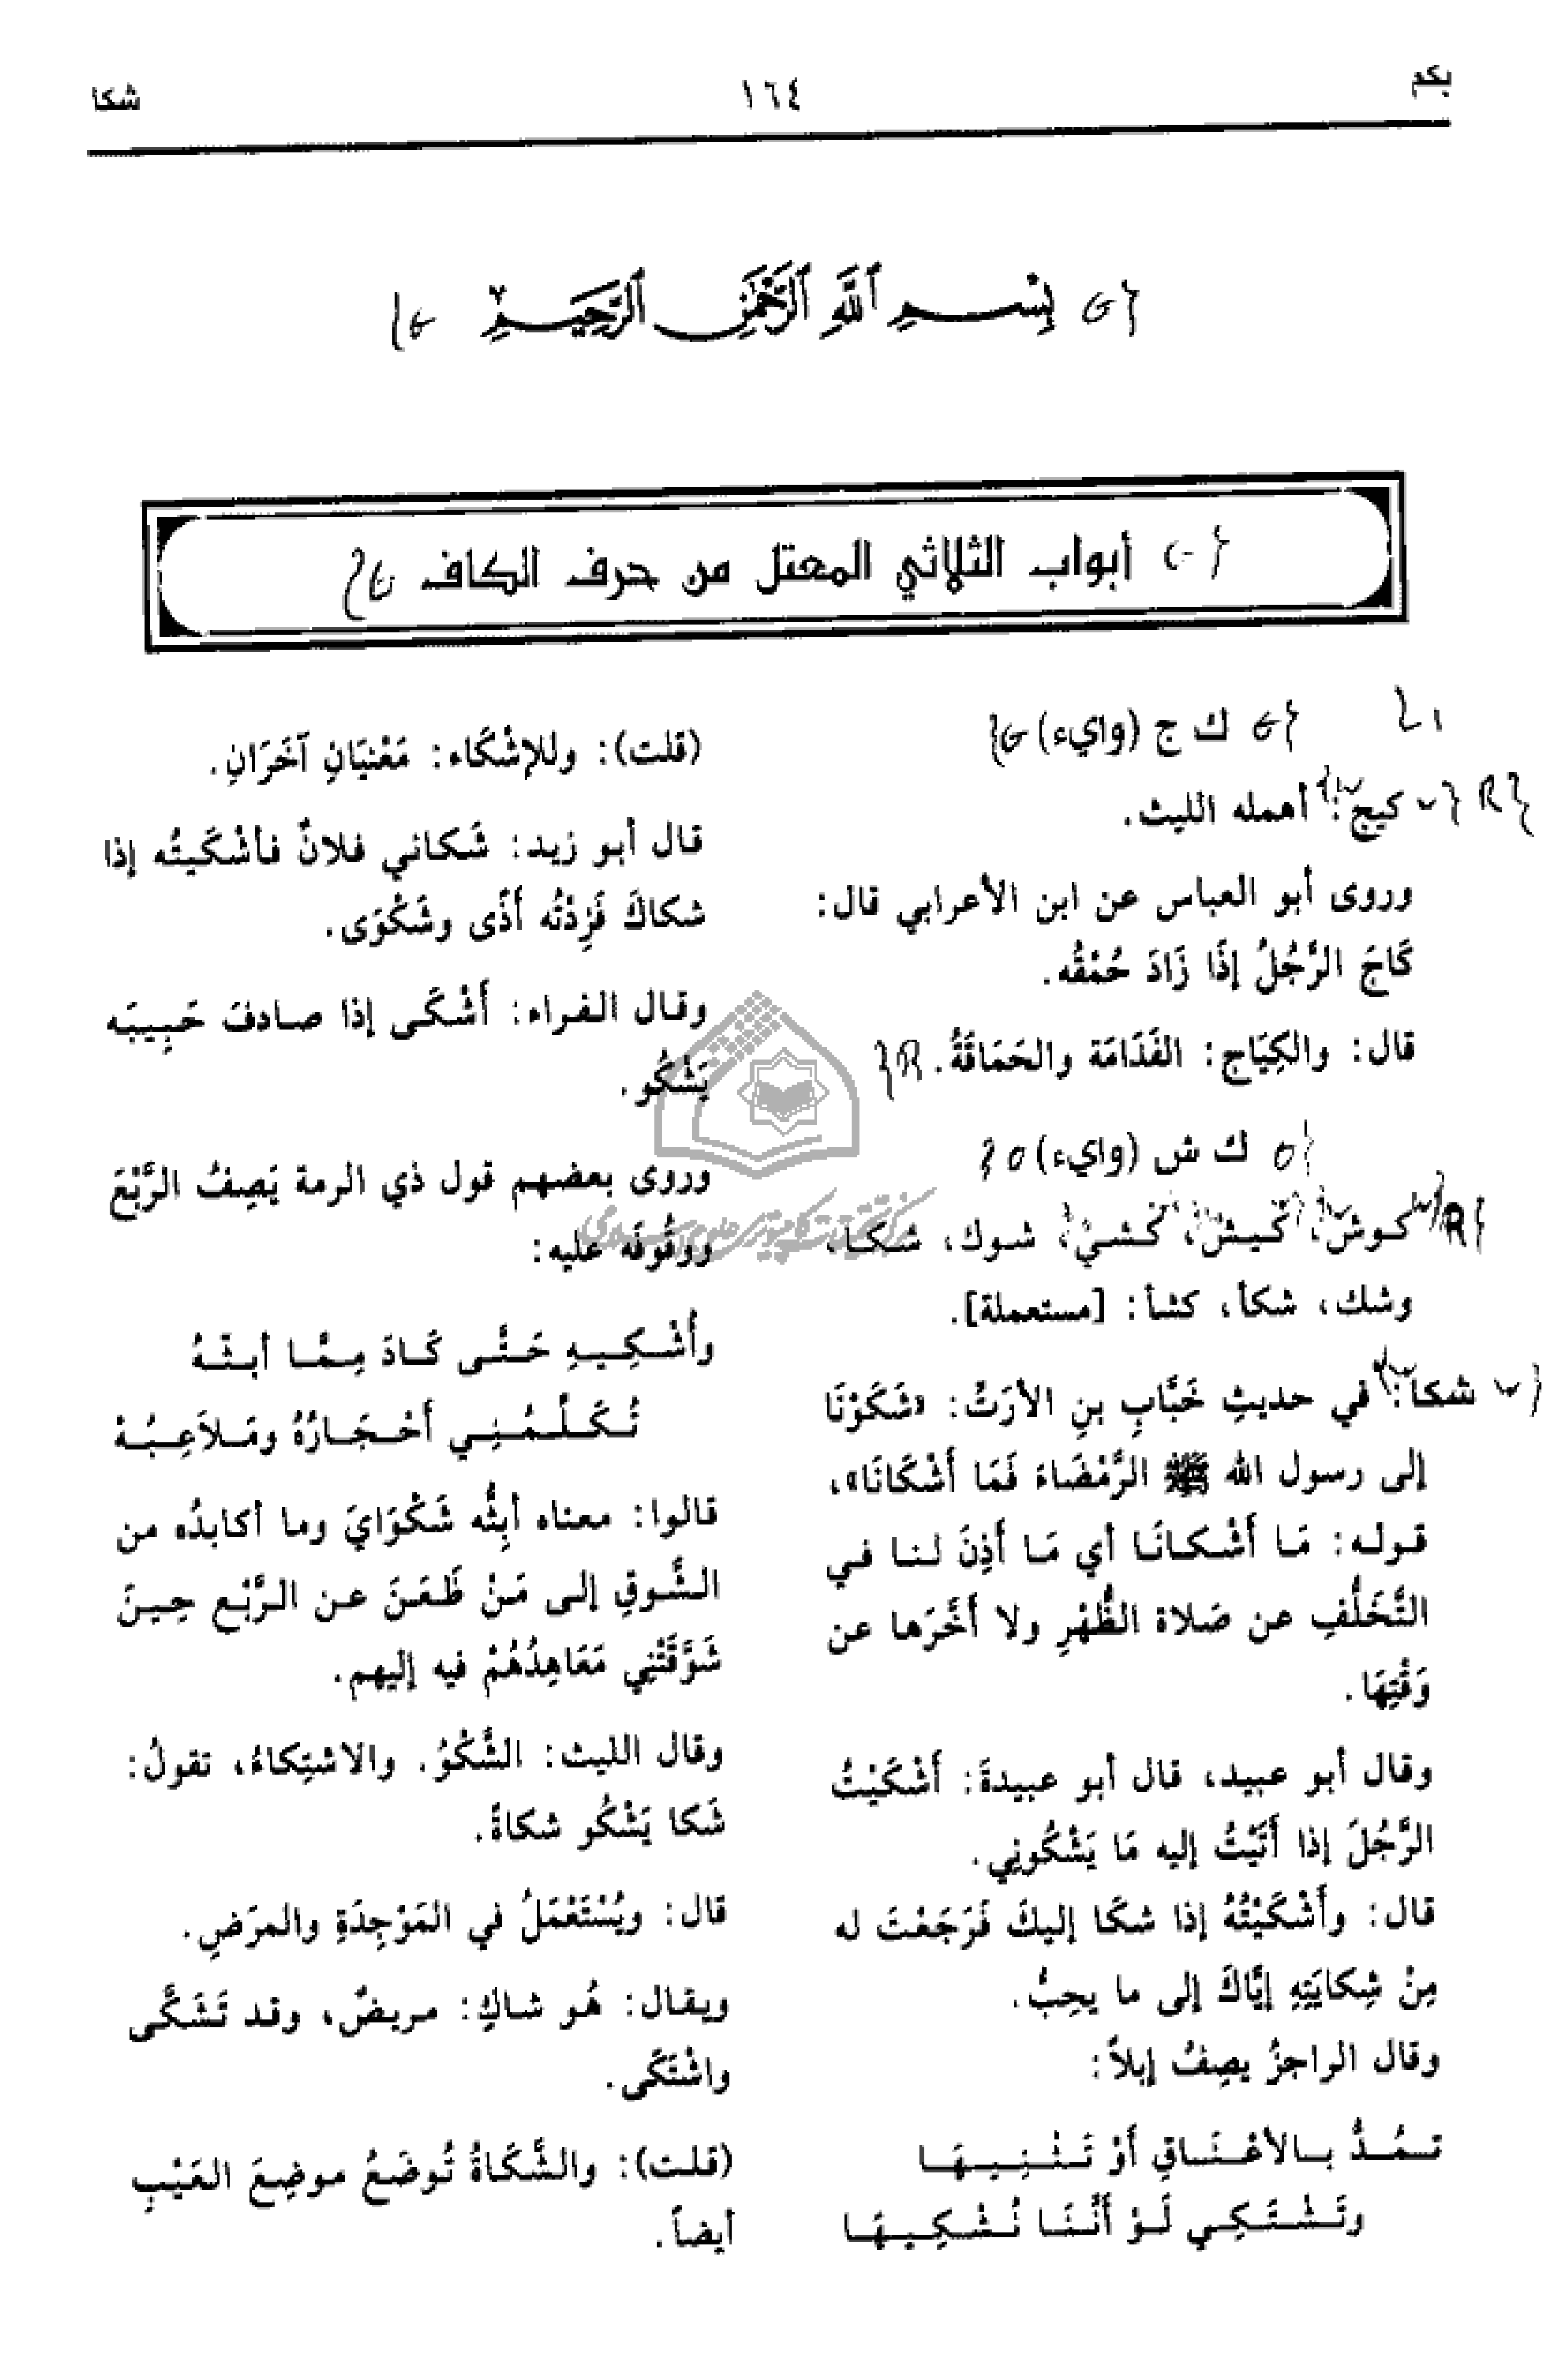 بكم
١٦٤
شكا
بِسْمِ ٱللَّهِ ٱلرَّحْمَٰنِ ٱلرَّحِيمِ
أبواب الثلاثي المعتل من حرف الكاف
ك ج (وايء)
كيج: أهمله الليث.
وروى أبو العباس عن ابن الأعرابي قال:
كَاجَ الرَّجُلُ إذَا زَادَ حُمْقُه.
قال: والكِيَاج: الفَدَامَة والحَمَاقَةُ.
ك ش (وايء)
كوش، كيش، كشي، شوك، شكا،
وشك، شكأ، كشأ: [مستعملة].
شكا: في حديثِ خَبَّابِ بنِ الأرَتّ: «شَكَوْنَا
إلى رسول الله ﷺ الرَّمْضَاءَ فَمَا أَشْكَانَا»،
قوله: مَا أَشْكانَا أي مَا أَذِنَ لنا في
التَّخَلُّفِ عن صَلاة الظُّهْرِ ولا أَخَّرَها عن
وَقْتِهَا.
وقال أبو عبيد، قال أبو عبيدةَ: أَشْكَيْتُ
الرَّجُلَ إذا أَتَيْتُ إليه مَا يَشْكُونِي.
قال: وأَشْكَيْتُهُ إذا شكَا إليكَ فَرَجَعْتَ له
مِنْ شِكايَتِهِ إيَّاكَ إلى ما يحِبُّ.
وقال الراجزُ يصِفُ إبلاً:
تـمُـدُّ بـالأعْـنَـاقِ أَوْ تَـثْـنِـيـهَـا
وتَـشْـتَـكِـي لَـوْ أَنَّـنَـا نُـشْـكِـيـهَـا
(قلت): وللإشْكَاء: مَعْنيَانِ آخَرَانِ.
قال أبو زيد: شَكاني فلانٌ فأشْكَيتُه إذا
شكاكَ فَزِدْتُه أَذًى وشَكْوَى.
وقال الفراء: أَشْكَى إذا صادفَ حَبِيبَه
يَشْكُو.
وروى بعضهم قول ذي الرمة يَصِفُ الرَّبْعَ
ووقُوفَه عليه:
وأُشْـكِـيـهِ حَـتَّـى كَـادَ مِـمَّـا أبـثّـهُ
تُـكَـلِّـمُـنِـي أَحْـجَـارُهُ ومَـلاَعِـبُـهْ
قالوا: معناه أبِثُّه شَكْوَايَ وما أكابدُه من
الشَّوقِ إلى مَنْ ظَعَنَ عن الرَّبْع حِينَ
شَوَّقَتْنِي مَعَاهِدُهُمْ فيه إليهم.
وقال الليث: الشَّكْوُ. والاشتِكاءُ، تقولُ:
شَكا يَشْكُو شكاةً.
قال: ويُسْتَعْمَلُ في المَوْجِدَةِ والمرَضِ.
ويقال: هُو شاكٍ: مريضٌ، وقد تَشَكَّى
واشْتَكَى.
(قلت): والشَّكَاةُ تُوضَعُ موضِعَ العَيْبِ
أيضاً.